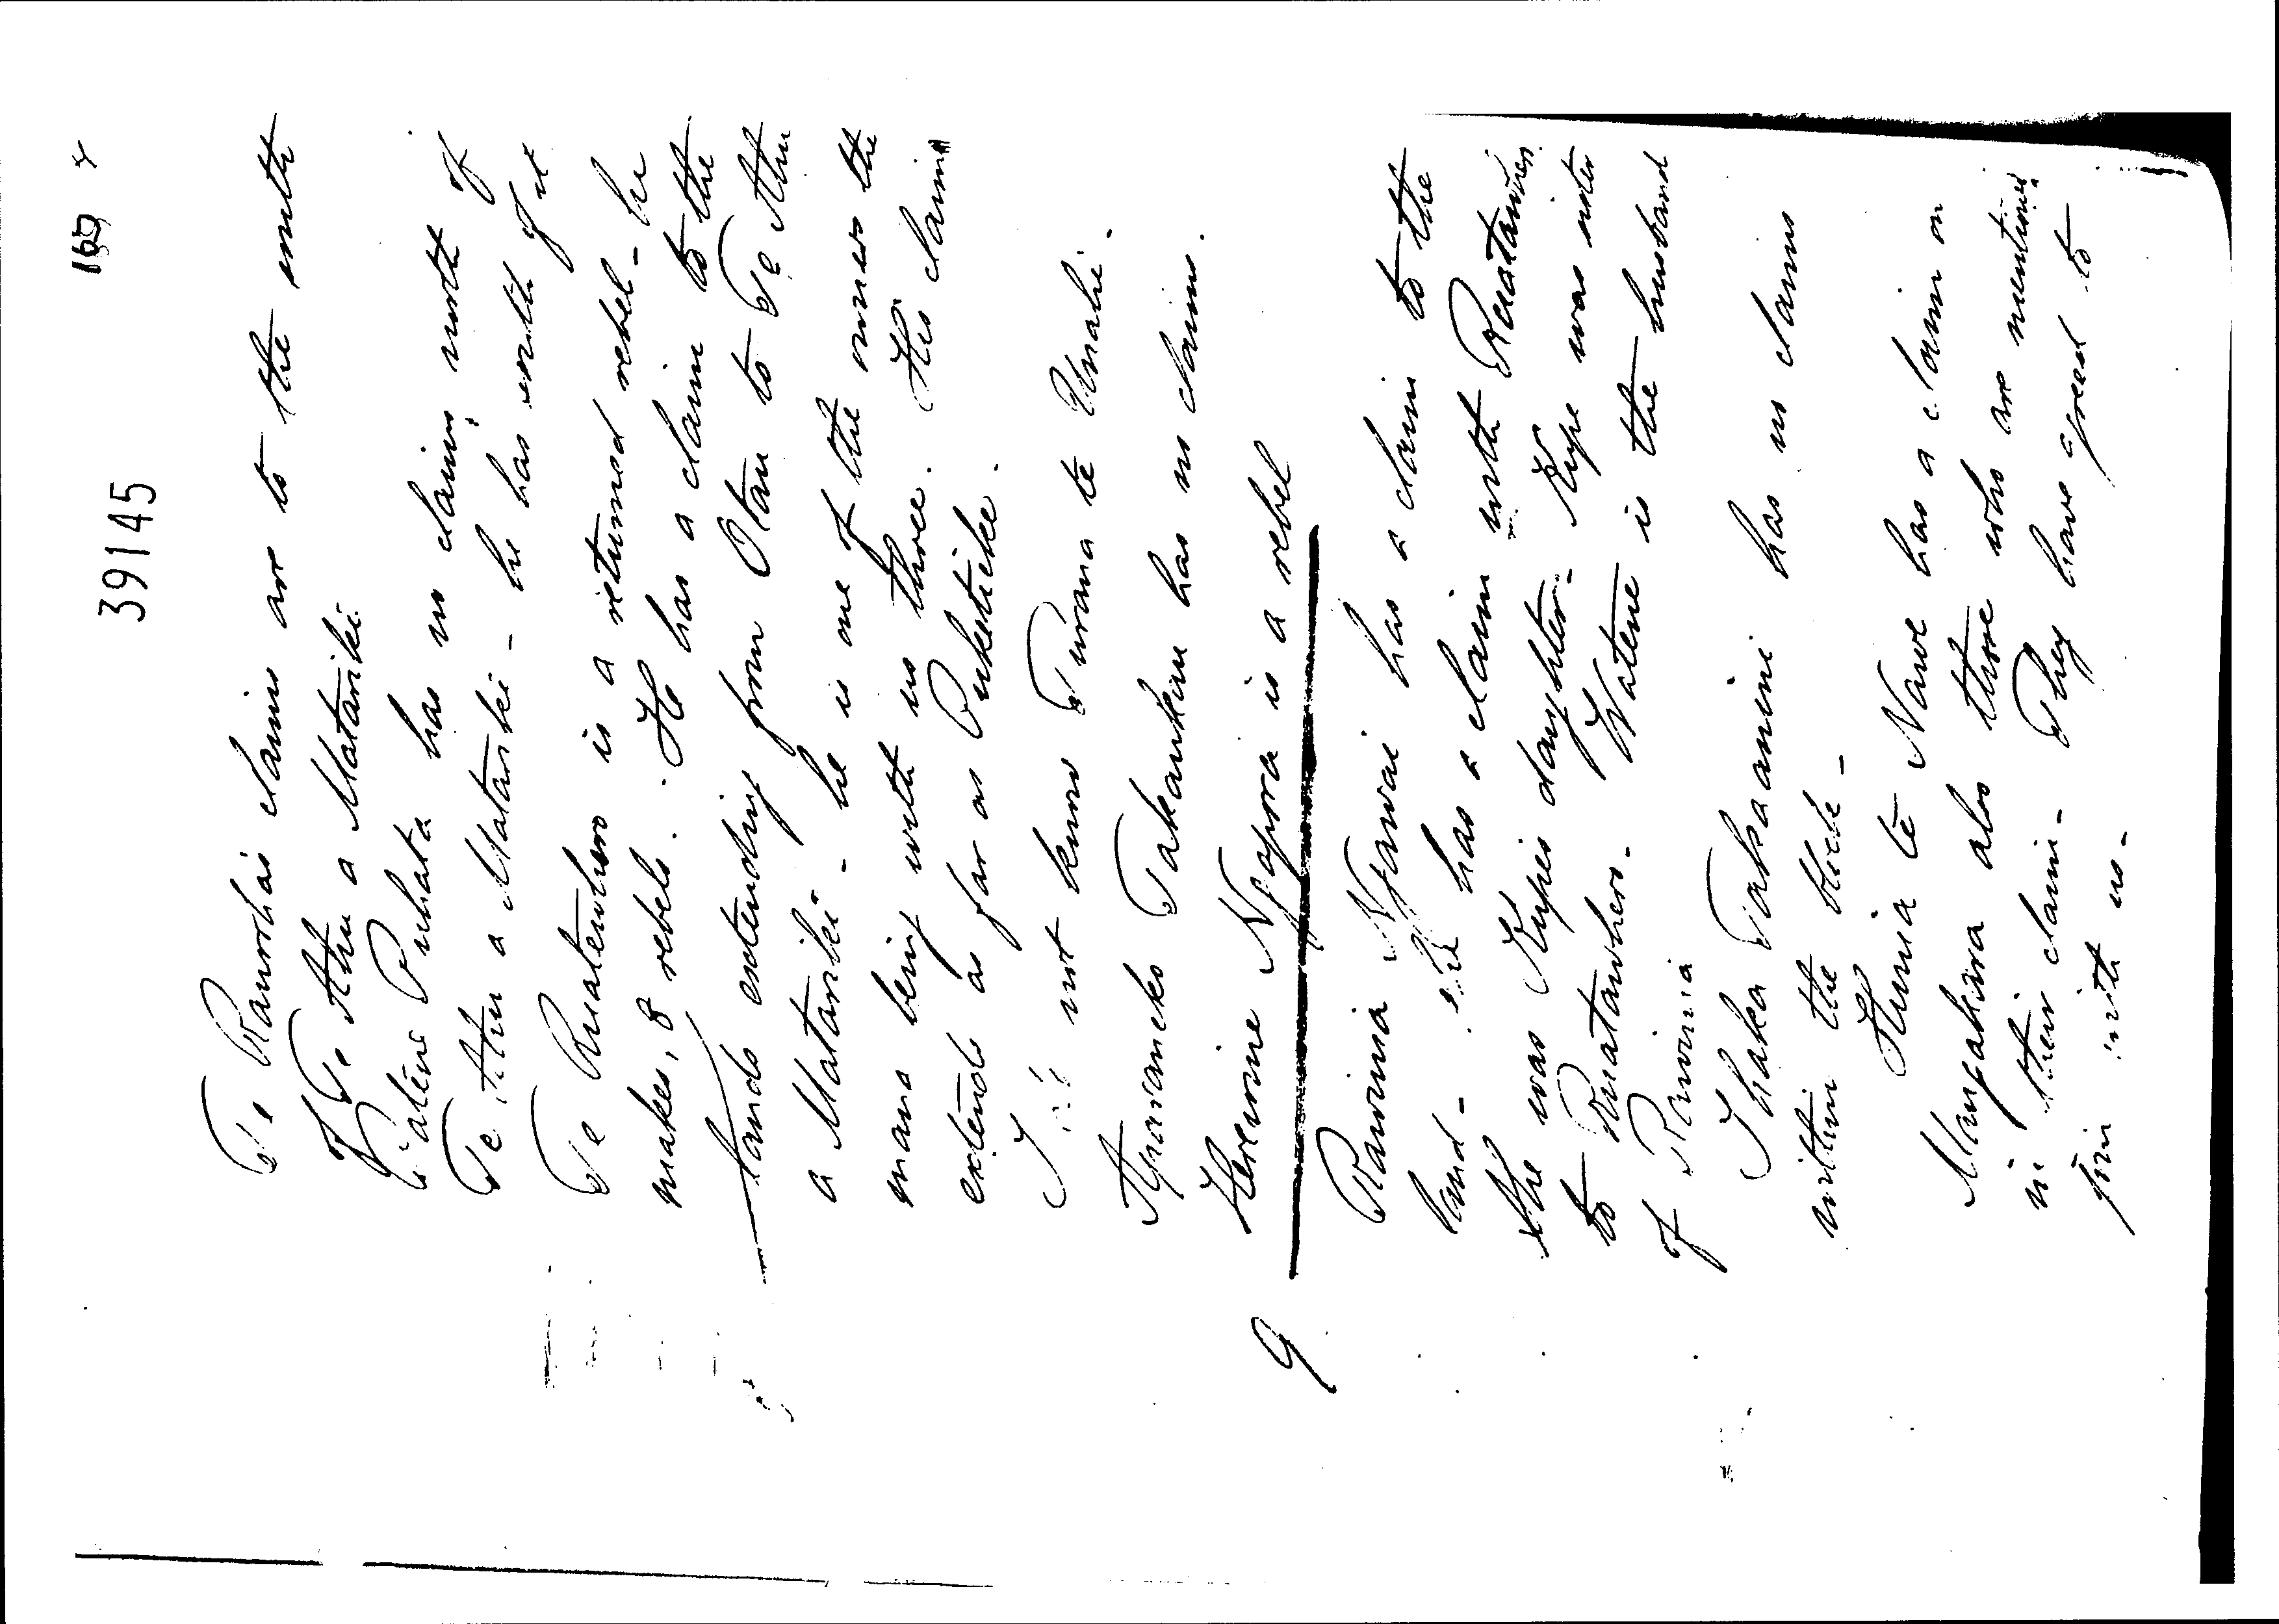 39145
Te Rauwhas claims are to the south
of Te Atu a Matarikii
Watene Puhata has no claims north of
Te Atu a Matarikii - he has south of it
Te Ruatewhero is a returned rebel - he
makes, 8 rebels. He has a claim to the
lands extending from Otau to Te Atu
a Matarikii - he is one of the ones the
mana being with us three. His claim
extends as far as Puketiche.
I do not know Turana te Urahi.
Aparaneko Takaukau has no claims.
Heremia Ngapora is a rebel
9
Rawinia Ngawai has a claim to the
land - she has a claim with Ruatawhero.
She was Kepes daughter - Kepe was sister
to Ruatawhero. Watene is the husband
of Rawinia
Ihaka Takaanini has no claims
within the block -
Hunia te Nawe has a claim on
Mangakiwa also those who are mentioned
in their claim - They have agreed to
join with us -